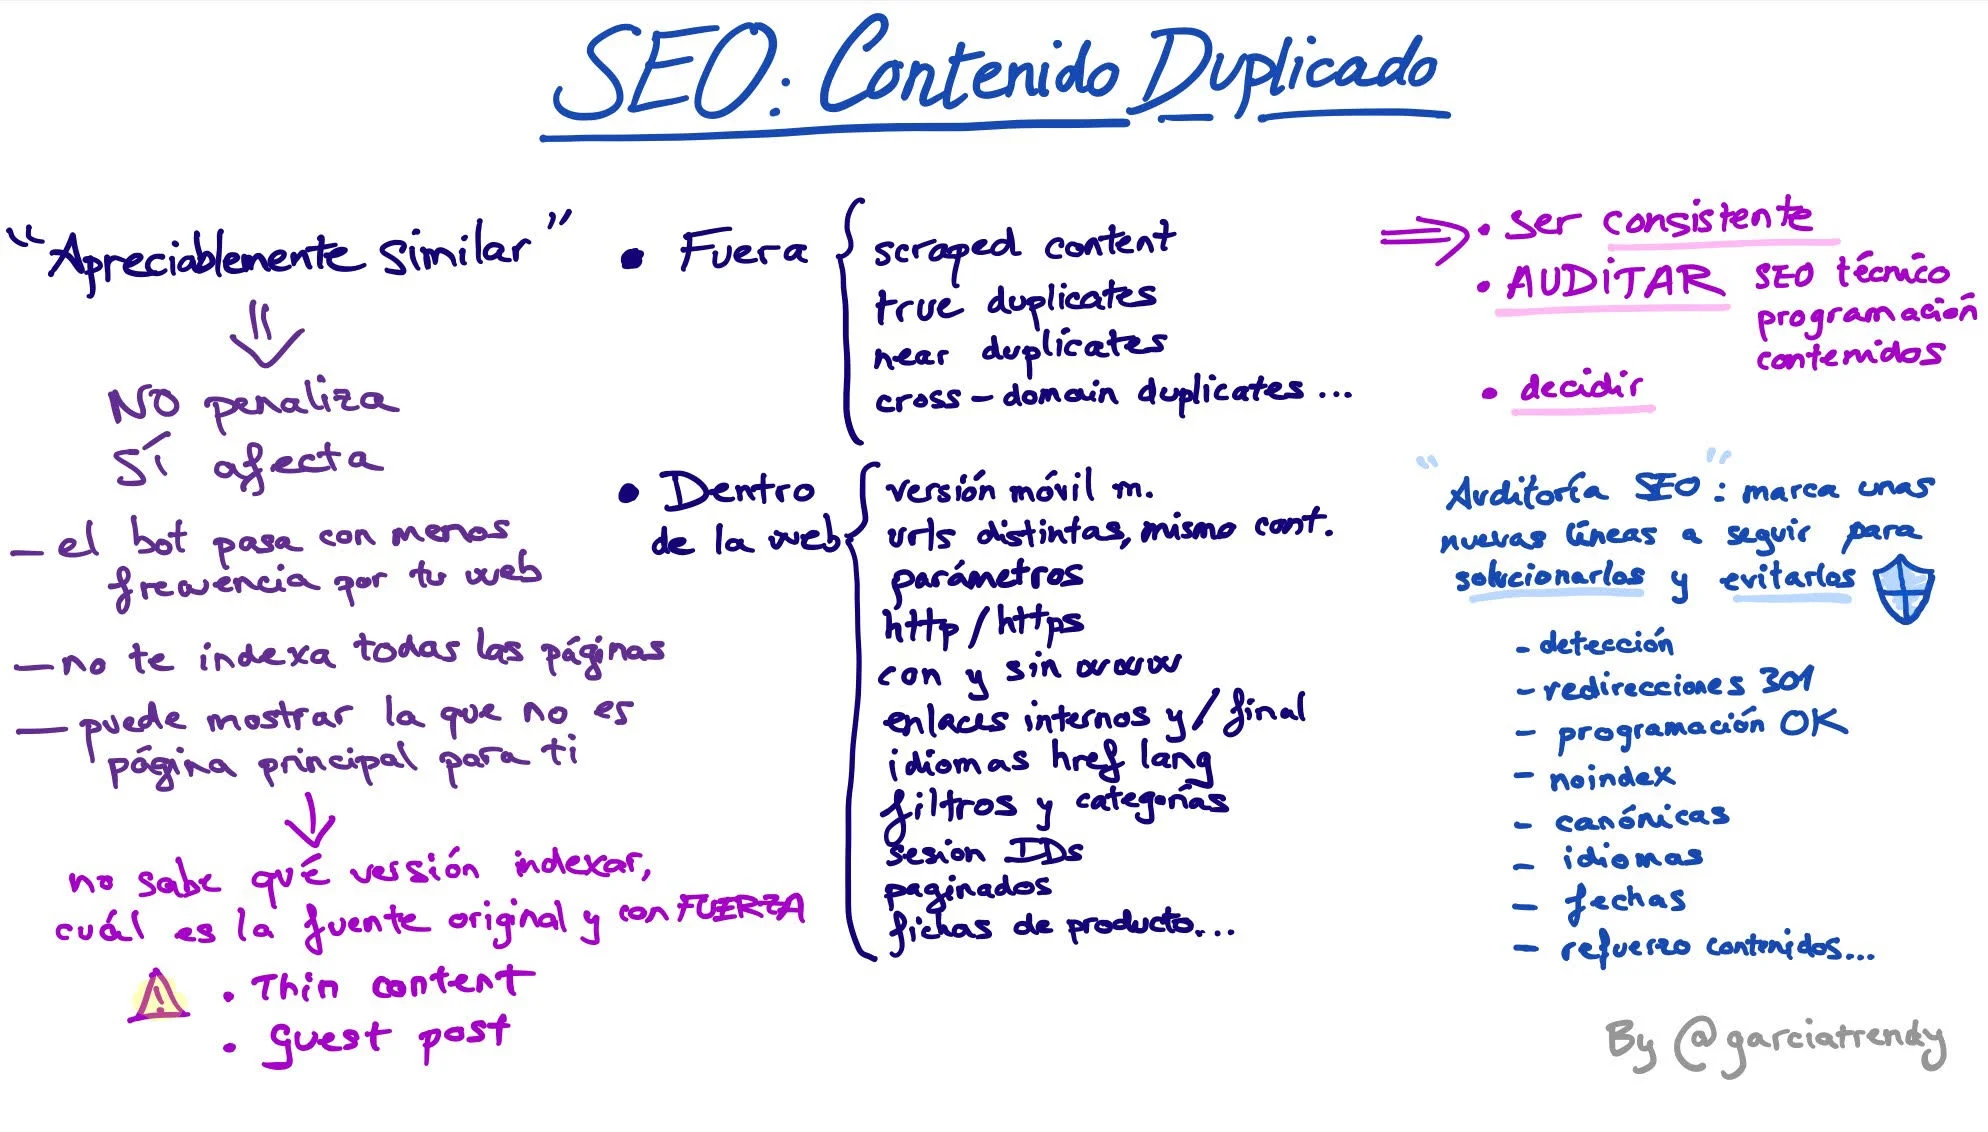 SEO: Contenido Duplicado
"Apreciablemente similar"
NO penaliza
SÍ afecta
— el bot pasa con menos
frecuencia por tu web
— no te indexa todas las páginas
— puede mostrar la que no es
página principal para ti
no sabe qué versión indexar,
cuál es la fuente original y con FUERZA
• Thin content
• Guest post
• Fuera
scraped content
true duplicates
near duplicates
cross-domain duplicates...
• Dentro
de la web
versión móvil m.
urls distintas, mismo cont.
parámetros
http/https
con y sin www
enlaces internos y / final
idiomas href lang
filtros y categorías
sesion IDs
paginados
fichas de producto...
• Ser consistente
• AUDITAR SEO técnico
programación
contenidos
• decidir
"Auditoría SEO": marca unas
nuevas líneas a seguir para
solucionarlos y evitarlos
- detección
- redirecciones 301
- programación OK
- noindex
- canónicas
- idiomas
- fechas
- refuerzo contenidos...
By @garciatrendy